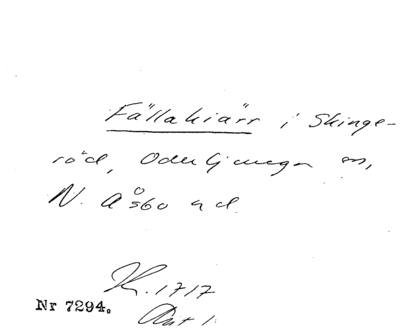 Fällakiärr i Skinge-
röd, Oderljunga sn,
N. Åsbo hd.
K. 1717
Akt 1.
Nr 7294.